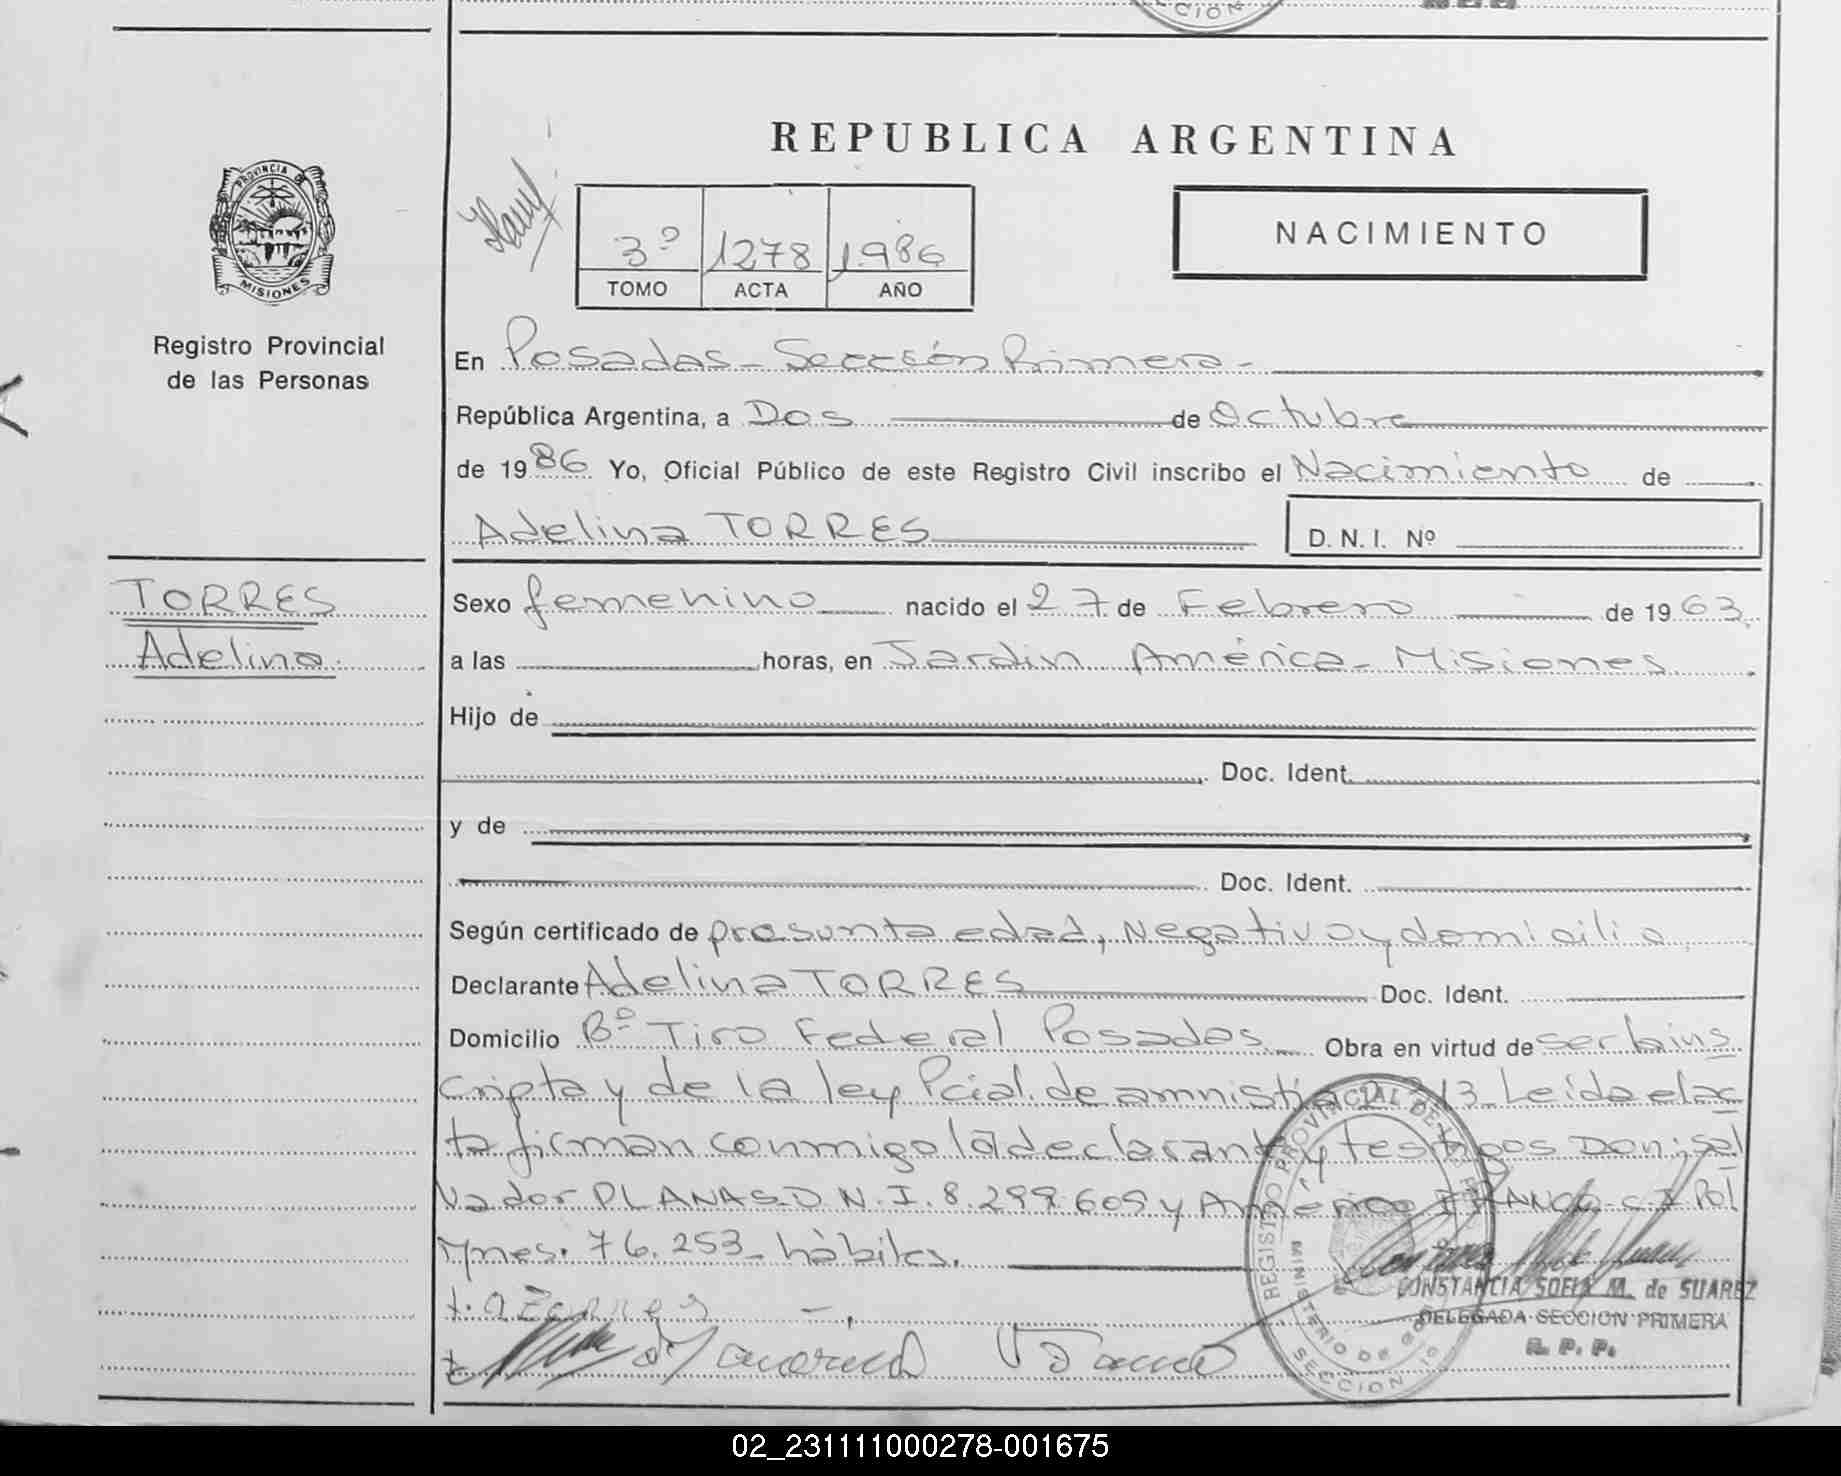 CCION
REPUBLICA ARGENTINA
PROVINCIA DE
MISIONES
3º 1278 1986
TOMO ACTA AÑO
NACIMIENTO
Registro Provincial
de las Personas
En Posadas - Sección Primera -
República Argentina, a Dos de Octubre
de 1986 Yo, Oficial Público de este Registro Civil inscribo el Nacimiento de
Adelina TORRES D.N.I. Nº
TORRES
Adelina
Sexo femenino nacido el 27 de Febrero de 1963
a las horas, en Jardin América - Misiones
Hijo de
Doc. Ident.
y de
Doc. Ident.
Según certificado de presunta edad, Negativo y domicilio
Declarante Adelina TORRES Doc. Ident.
Domicilio Bº Tiro Federal Posadas Obra en virtud de ser la ins
cripta y de la ley Pcial. de amnistía 13 - Leída el ac
ta firman conmigo la declarante y testigos Don: Sal
vador PLANAS D.N.I. 8.299.609 y Américo FRANCO C.I. Pol
Mnes. 76.253 - hábiles.
CONSTANCIA SOFIA M. de SUAREZ
DELEGADA SECCION PRIMERA
R. P. P.
REGISTRO PROVINCIAL DE
MINISTERIO DE GO
SECCION 1º
02_231111000278-001675